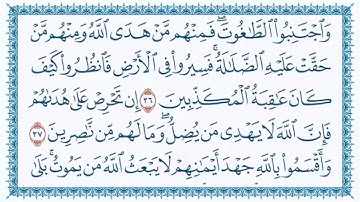 وَٱجۡتَنِبُواْ ٱلطَّٰغُوتَۖ فَمِنۡهُم مَّنۡ هَدَى ٱللَّهُ وَمِنۡهُم مَّنۡ
حَقَّتۡ عَلَيۡهِ ٱلضَّلَٰلَةُۚ فَسِيرُواْ فِي ٱلۡأَرۡضِ فَٱنظُرُواْ كَيۡفَ
كَانَ عَٰقِبَةُ ٱلۡمُكَذِّبِينَ ٣٦ إِن تَحۡرِصۡ عَلَىٰ هُدَىٰهُمۡ
فَإِنَّ ٱللَّهَ لَا يَهۡدِي مَن يُضِلُّۖ وَمَا لَهُم مِّن نَّٰصِرِينَ
٣٧ وَأَقۡسَمُواْ بِٱللَّهِ جَهۡدَ أَيۡمَٰنِهِمۡ لَا يَبۡعَثُ ٱللَّهُ مَن يَمُوتُۚ بَلَىٰ